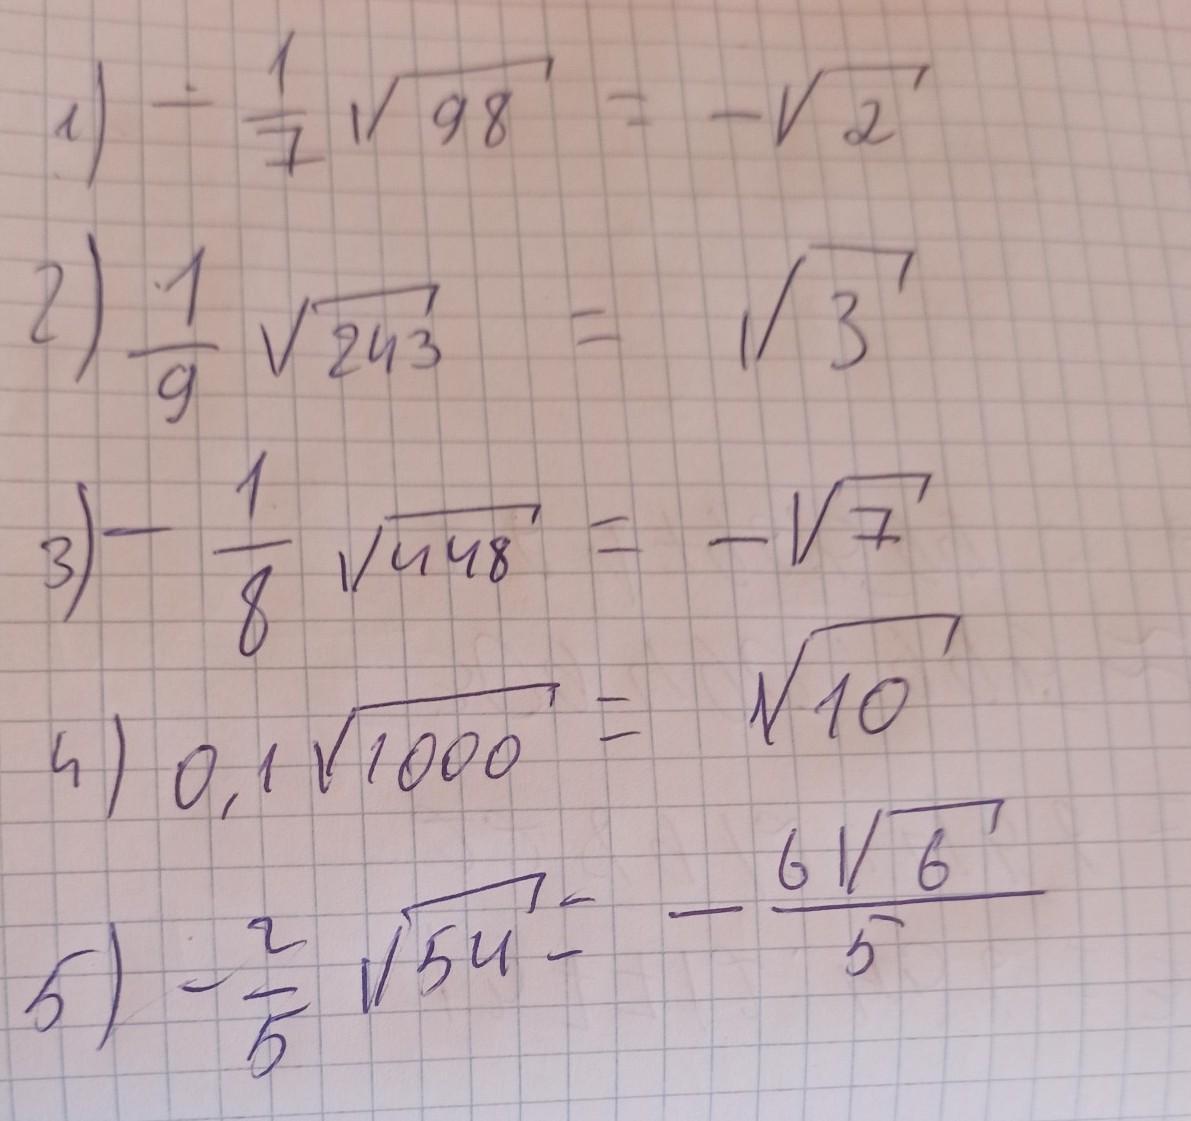 1) - 1/7 √98 = -√2
2) 1/9 √243 = √3
3) - 1/8 √448 = -√7
4) 0,1√1000 = √10
5) - 2/5 √54 = - 6√6/5